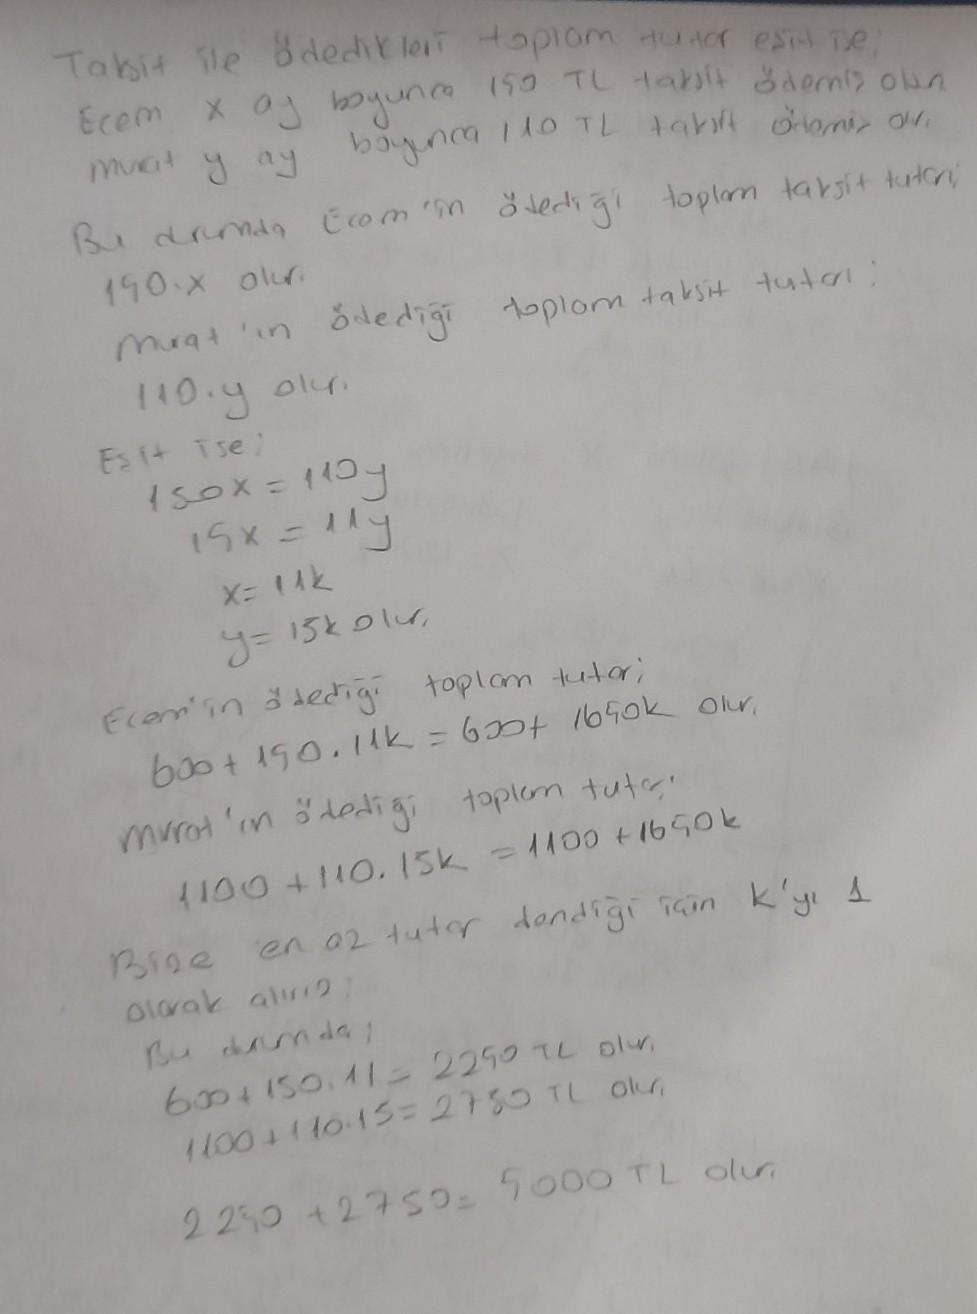 Taksit ile ödedikleri toplam tutar eşit ise;
Ecem x ay boyunca 150 TL taksit ödemiş olsun
Murat y ay boyunca 110 TL taksit ödemiş olur.
Bu durumda Ecem'in ödediği toplam taksit tutarı;
150.x olur.
Murat'ın ödediği toplam taksit tutarı;
110.y olur.
Eşit ise;
150x = 110y
15x = 11y
x = 11k
y = 15k olur.
Ecem'in ödediği toplam tutar;
600 + 150.11k = 600 + 1650k olur.
Murat'ın ödediği toplam tutar;
1100 + 110.15k = 1100 + 1650k
Bize en az tutar dendiği için k'yı 1
olarak alırız;
Bu durumda;
600 + 150.11 = 2250 TL olur.
1100 + 110.15 = 2750 TL olur.
2250 + 2750 = 5000 TL olur.